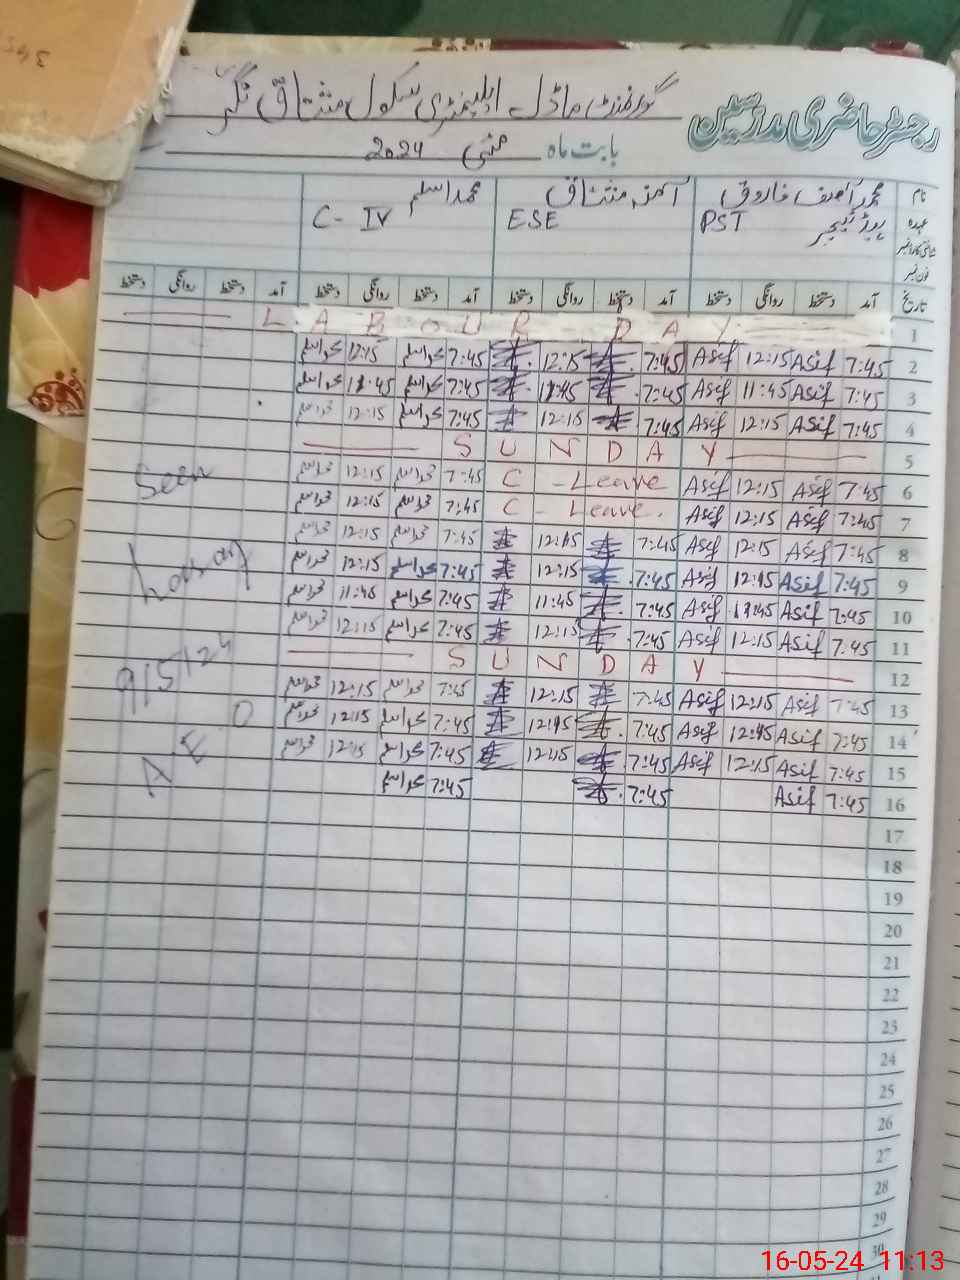 رجسٹر حاضری مدرسین
گورنمنٹ ماڈل ایلیمنٹری سکول مشتاق نگر
بابت ماہ مئی 2024
نام محمد آصف فاروق آمنہ مشتاق محمد اسلم
عہدہ ہیڈ ٹیچر PST ESE C-IV
شناختی کارڈ نمبر
فون نمبر
تاریخ آمد دستخط روانگی دستخط آمد دستخط روانگی دستخط آمد دستخط روانگی دستخط آمد دستخط روانگی دستخط
1 LABOUR DAY
2 7:45 Asif 12:15 Asif 7:45 12:15 7:45 محمد اسلم 12:15 محمد اسلم
3 7:45 Asif 11:45 Asif 7:45 11:45 7:45 محمد اسلم 11:45 محمد اسلم
4 7:45 Asif 12:15 Asif 7:45 12:15 7:45 محمد اسلم 12:15 محمد اسلم
5 SUNDAY
6 7:45 Asif 12:15 Asif C-Leave 7:45 محمد اسلم 12:15 محمد اسلم
7 7:45 Asif 12:15 Asif C-Leave. 7:45 محمد اسلم 12:15 محمد اسلم
8 7:45 Asif 12:15 Asif 7:45 12:15 7:45 محمد اسلم 12:15 محمد اسلم
9 7:45 Asif 12:15 Asif 7:45 12:15 7:45 محمد اسلم 12:15 محمد اسلم
10 7:45 Asif 11:45 Asif 7:45 11:45 7:45 محمد اسلم 11:45 محمد اسلم
11 7:45 Asif 12:15 Asif 7:45 12:15 7:45 محمد اسلم 12:15 محمد اسلم
12 SUNDAY
13 7:45 Asif 12:15 Asif 7:45 12:15 7:45 محمد اسلم 12:15 محمد اسلم
14 7:45 Asif 12:15 Asif 7:45 12:15 7:45 محمد اسلم 12:15 محمد اسلم
15 7:45 Asif 12:15 Asif 7:45 12:15 7:45 محمد اسلم 12:15 محمد اسلم
16 7:45 Asif 7:45 7:45 محمد اسلم
17
18
19
20
21
22
23
24
25
26
27
28
29
30
Seen
9/5/24
AEO
16-05-24 11:13